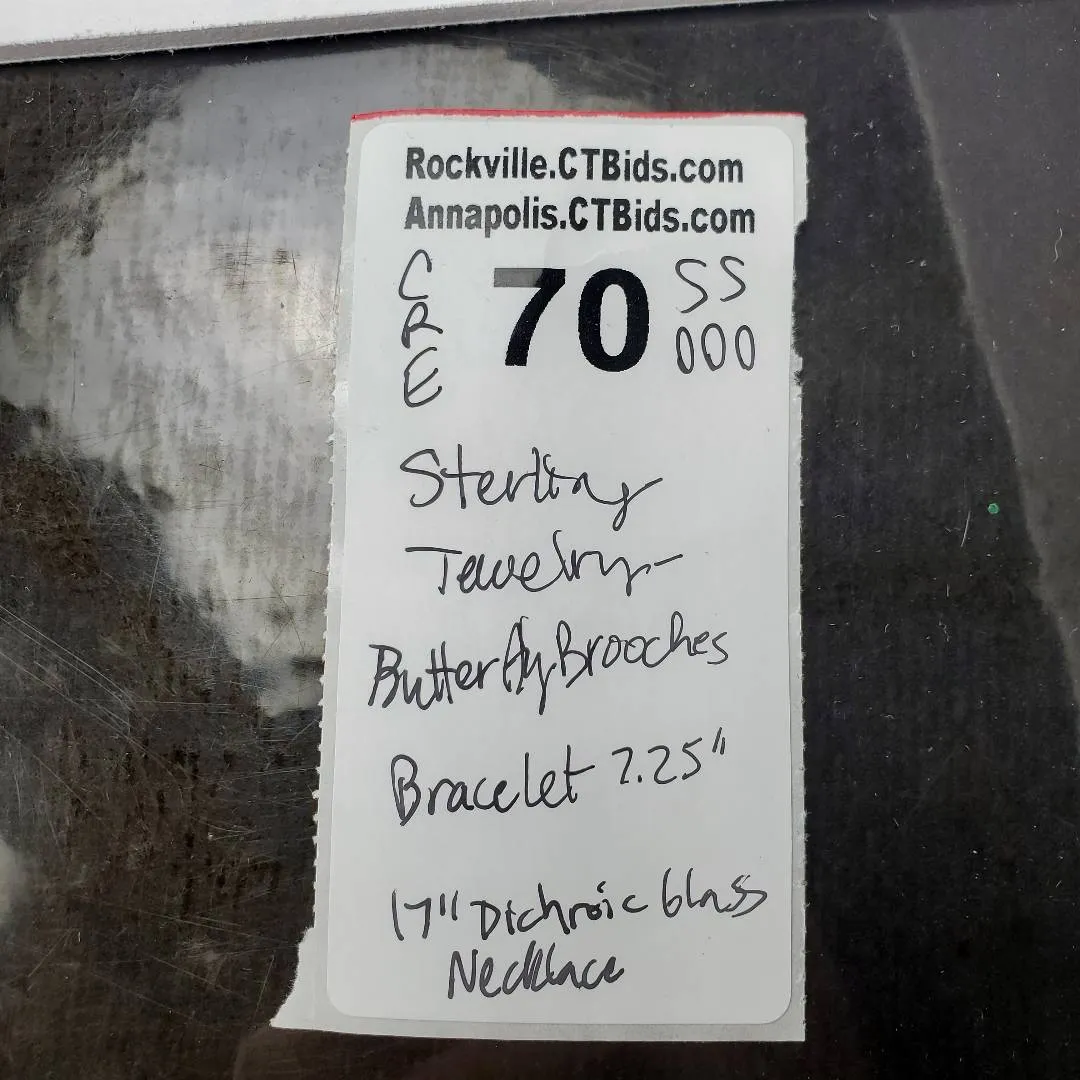 Rockville.CTBids.com
Annapolis.CTBids.com
CRE 70 SS
000
Sterling
Jewelry-
Butterfly Brooches
Bracelet 7.25"
17" Dichroic Glass
Necklace